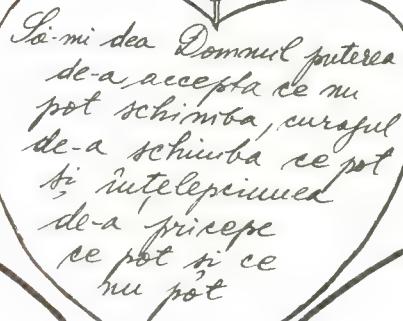 Să-mi dea Domnul puterea
de-a accepta ce nu
pot schimba, curajul
de-a schimba ce pot
și înțelepciunea
de-a pricepe
ce pot si ce
nu pot